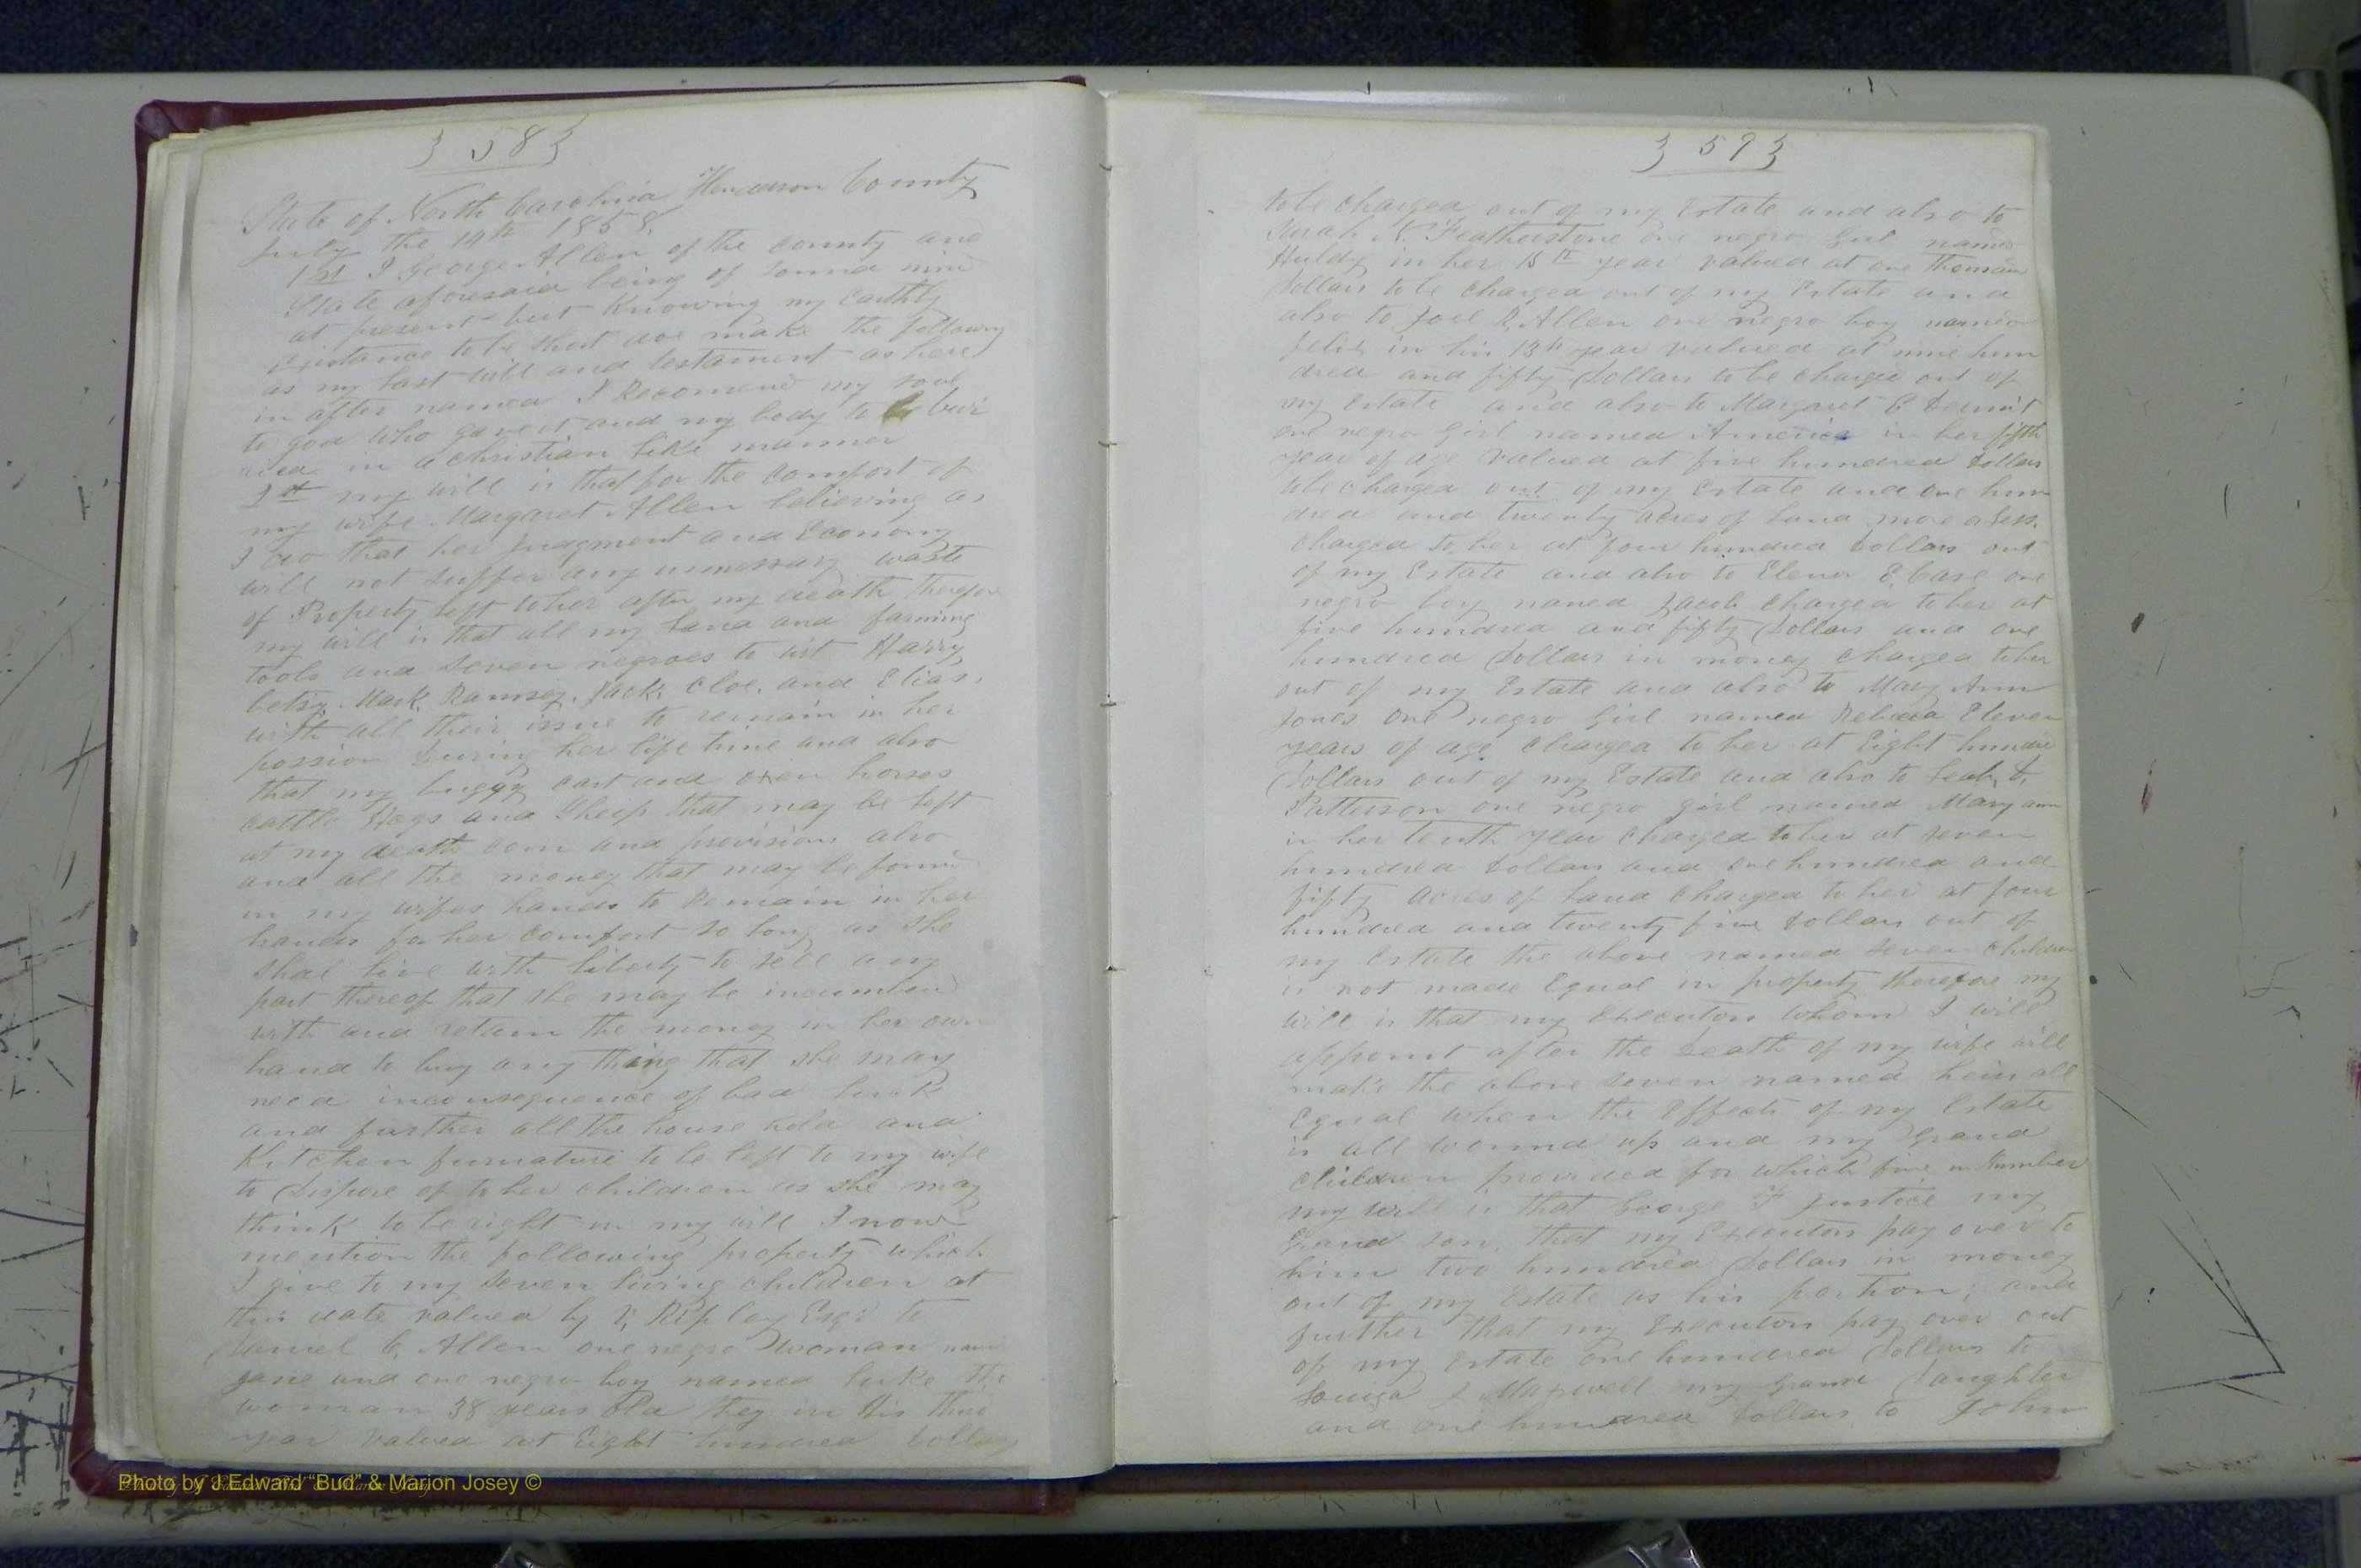 } 58 }
State of North Carolina Henderson County
July the 14th 1858.
1st I George Allen of the county and
State aforesaid being of sound mind
at present but Knowing my Earthly
Existance to be short doe make the following
as my last will and testament as here
in after named I Recomend my soul
to god who gave it and my body to be buri
ried in a christian like manner
my will is that for the comfort of
my wife Margaret Allen believing as
I do that her Judgment and Economy
will not suffer any unnessary waste
of Property left to her after my death therefore
my will is that all my land and farming
tools and seven negroes to wit Harry
betsy. Mark. Ramsey. Jack. Cloe. and Elias.
with all their issue to remain in her
possion during her life time and also
that my buggy cart and oxen horses
cattle Hogs and Sheep that may be left
at my death corn and provisions also
and all the money that may be found
in my wifes hands to Remain in her
hands for her comfort so long as she
shal live with liberty to sell any
part thereof that she may be incumberd
with and retain the money in her own
hand to buy any thing that she may
need inconsequence of bad luck
and further all the house hold and
Kitchen furnature to be left to my wife
to dispose of to her children as she may
think to be right in my will I now
mention the following property which
I give to my seven living children at
this date valued by V, Ripley Esqr to
Daniel C, Allen one negro woman
Jane and one negro boy named Luke the
woman 38 years old they in His third
year valued at Eight hundred dollars
} 59 }
to be charged out of my Estate and also to
Sarah N. Featherstone one negro Girl named
Huldy in her 15th year valued at one Thousand
dollars to be charged out of my Estate and
also to Joel R, Allen one negro boy named
felix in his 13th year valued at nine hun
dred and fifty dollars to be charged out of
my Estate and also to Margaret
one negro Girl named America in her fifth
year of age valued at five hundred dollars
to be charged out of my Estate and one hun
dred and twenty acres of land more or less.
charged to her at four hundred dollars out
of my Estate and also to Elenor E, Case one
negro boy named Jacob charged to her at
five hundred and fifty dollars and one
hundred dollars in money charged to her
out of my Estate and also to Mary Ann
Jones one negro Girl named Rebecca Eleven
years of age charged to her at Eight hundred
dollars out of my Estate and also to Leah
Patterson one negro girl named Mary ann
in her tenth year charged to her at seven
hundred dollars and one hundred and
fifty acres of land charged to her at four
hundred and twenty five dollars out of
my Estate the above named seven children
is not made Equal in property therefore my
will is that my Executors whom I will
appoint after the death of my wife will
make the above seven named heirs all
Equal when the Effects of my Estate
is all wound up and my Grand
children provided for which five in Number
my will is that George F Justice my
Grand son. that my Executors pay over to
him two hundred dollars in money
out of my Estate as his portion; and
further that my Executors pay over out
of my Estate one hundred dollars to
Louiza J Maxwell my Grand daughter
and one hundred dollars to John
Photo by J Edward "Bud" & Marion Josey ©